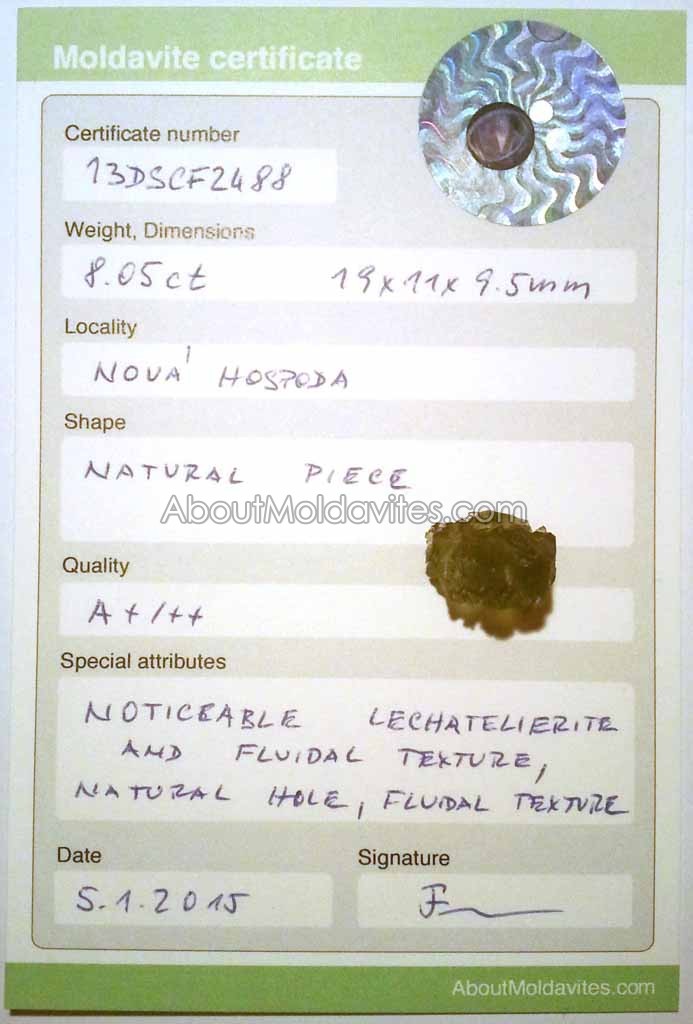 Moldavite certificate
Certificate number
13DSCF2488
Weight, Dimensions
8.05ct 19x11x9.5mm
Locality
NOVÁ HOSPODA
Shape
NATURAL PIECE
AboutMoldavites.com
Quality
A+/++
Special attributes
NOTICEABLE LECHATELIERITE
AND FLUIDAL TEXTURE,
NATURAL HOLE, FLUDAL TEXTURE
Date Signature
5.1.2015
AboutMoldavites.com